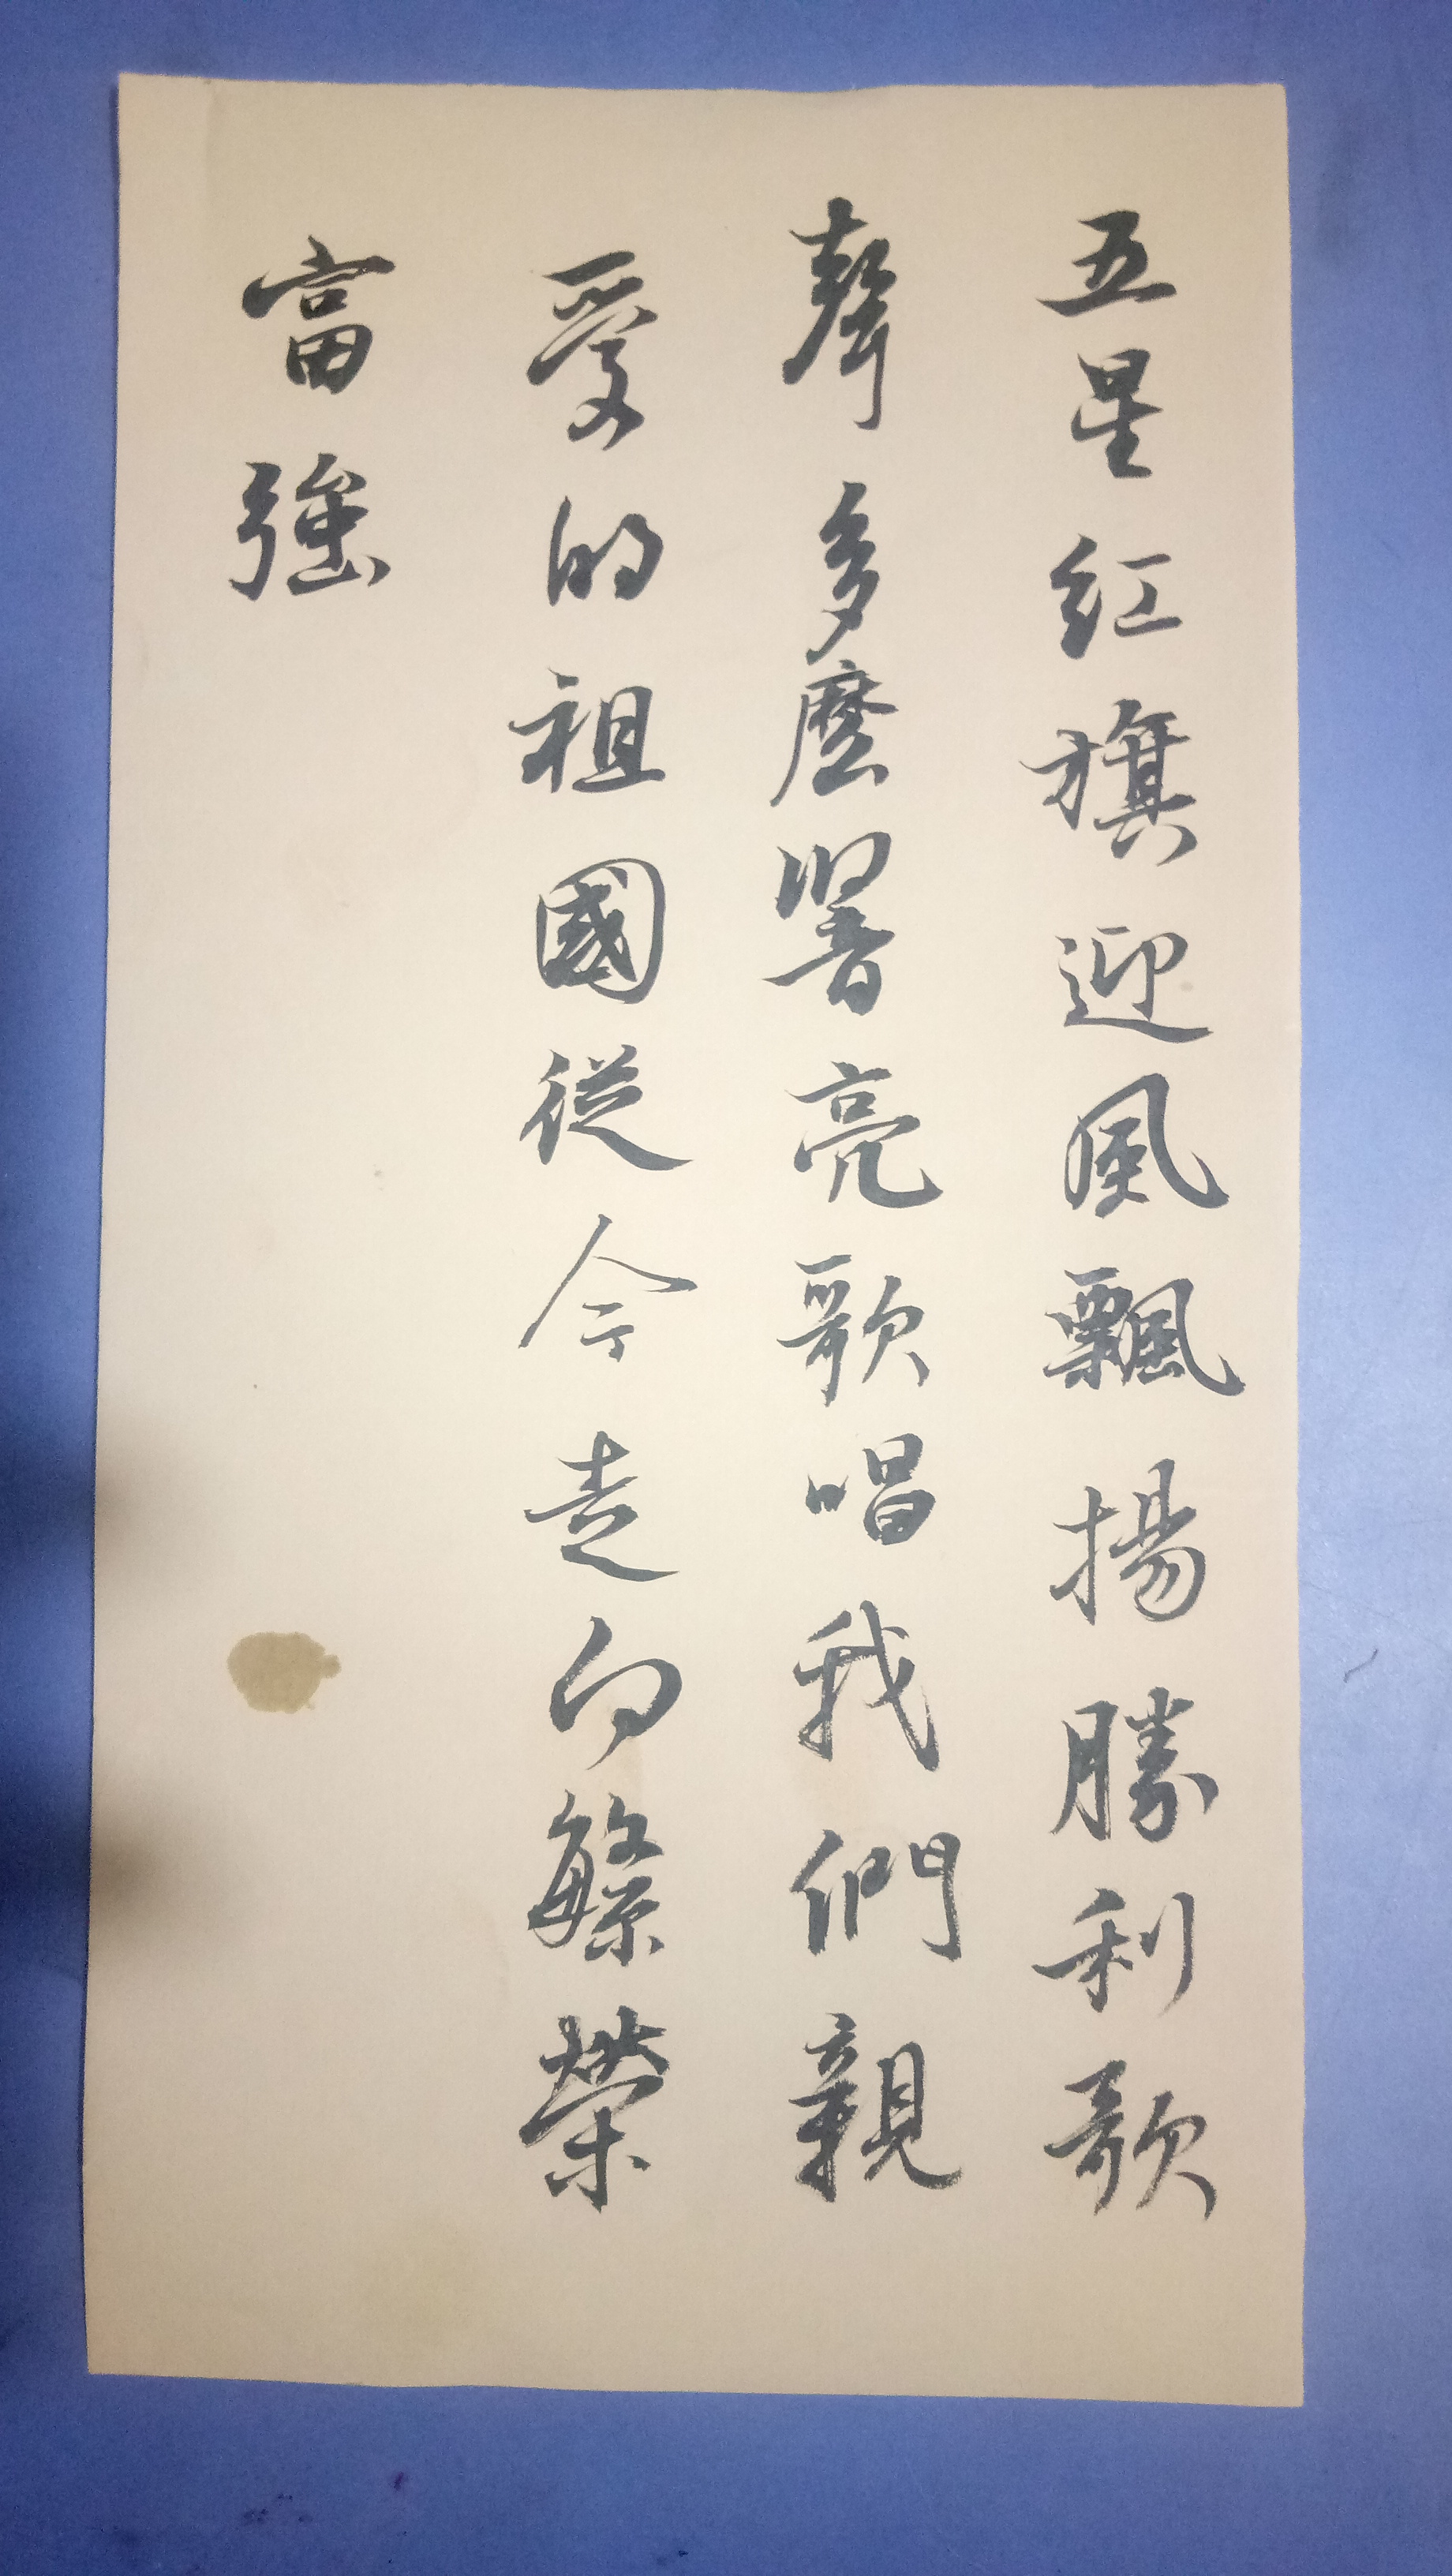 五星红旗迎風飄揚勝利歌
聲多麼響亮歌唱我們親
愛的祖國從今走向繁榮
富強